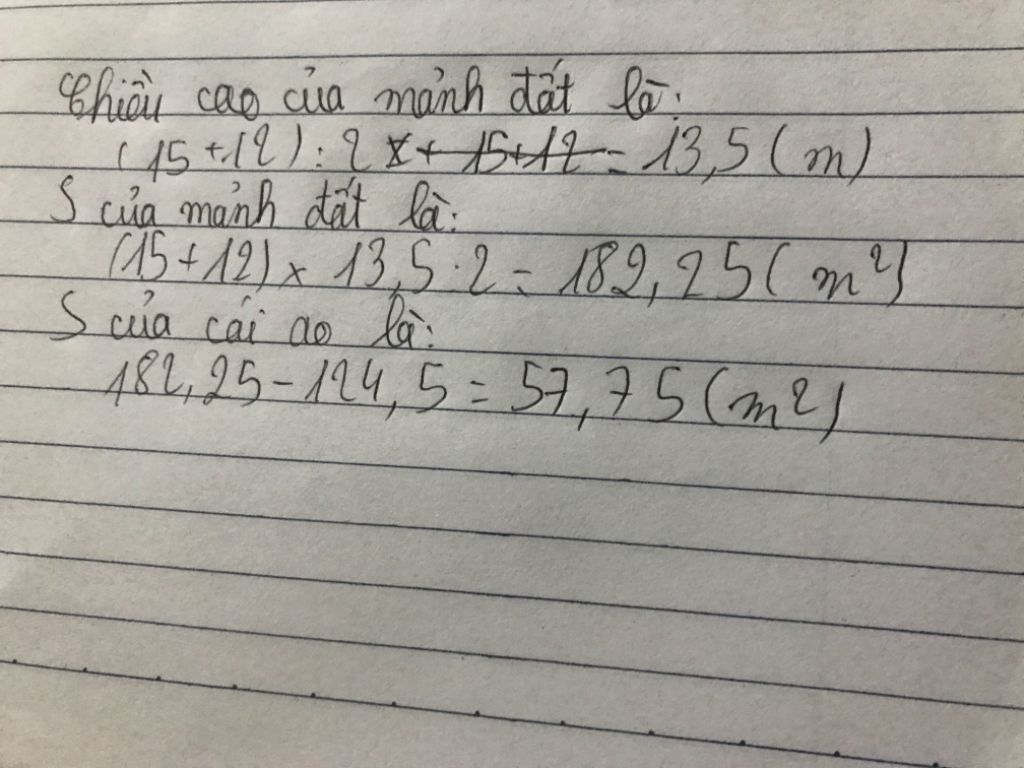 Chiều cao của mảnh đất là:
(15 + 12) : 2 x + 15 + 12 = 13,5 (m)
S của mảnh đất là:
(15 + 12) x 13,5 : 2 = 182,25 (m²)
S của cái ao là:
182,25 - 124,5 = 57,75 (m²)